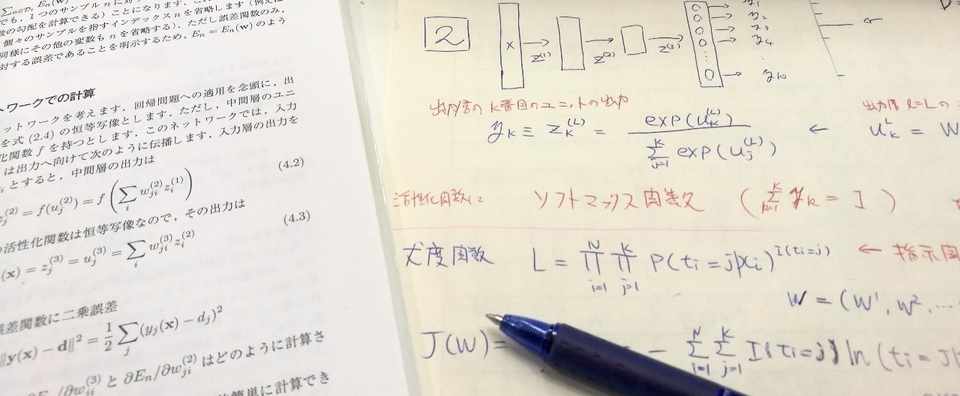 でも，1つのサンプル n に対
数の勾配を計算できる）ことになります．これ
個々のサンプルを指すインデックス n を省略します（例えば
同様にその他の変数も n を省略する）．ただし誤差関数のみ，
対する誤差であることを明示するため，E_n = E_n(w) のよう
トワークでの計算
ットワークを考えます．回帰問題への適用を念頭に，出
を式 (2.4) の恒等写像とします．ただし，中間層のユニ
化関数 f を持つとします．このネットワークでは，入力
は出力へ向けて次のように伝播します．入力層の出力を
とすると，中間層の出力は
z_j^{(2)} = f(u_j^{(2)}) = f(∑_i w_{ji}^{(2)} z_i^{(1)}) (4.2)
活性化関数は恒等写像なので，その出力は
(x) = z_j^{(3)} = u_j^{(3)} = ∑_i w_{ji}^{(3)} z_i^{(2)} (4.3)
誤差関数に二乗誤差
‖y(x) − d‖^2 = 1/2 ∑_j (y_j(x) − d_j)^2
/∂w_{ji}^{(3)} と ∂E_n/∂w_{ji}^{(2)} はどのように計算さ
簡単に計算でき
2
x z^{(1)} z^{(2)} z^{(3)}
y_{10}
出力層の k番目のユニットの出力
y_k ≡ z_k^{(L)} = exp(u_k^{(L)}) / ∑_{j=1}^{K} exp(u_j^{(L)}) ←
出力層 l=L の
u_k^L = W
活性化関数に ソフトマックス関数 (∑_{k=1}^{K} y_k = 1)
尤度関数 L = ∏_{i=1}^{N} ∏_{j=1}^{K} P(t_i=j|x_i)^{I(t_i=j)} ← 指示関
W = (W^1, W^2, ...
J(W) = − ∑_{i=1}^{N} ∑_{j=1}^{K} I(t_i=j) ln (t_i=j|